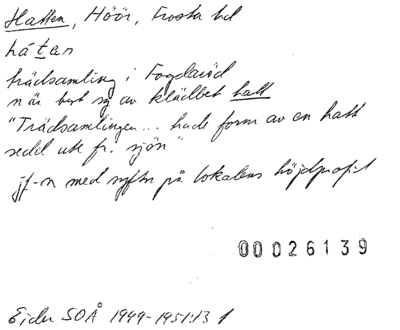 Hatten, Höör, Frosta hd
håtan
trädsamling i Fogdaröd
när best sg av klädbet hatt
"Trädsamlingen... hade form av en hatt
sedd ute fr. sjön"
jf-n med syftn på lokalens höjdprofil
00026139
Ejder SOÅ 1949-1951:13 f